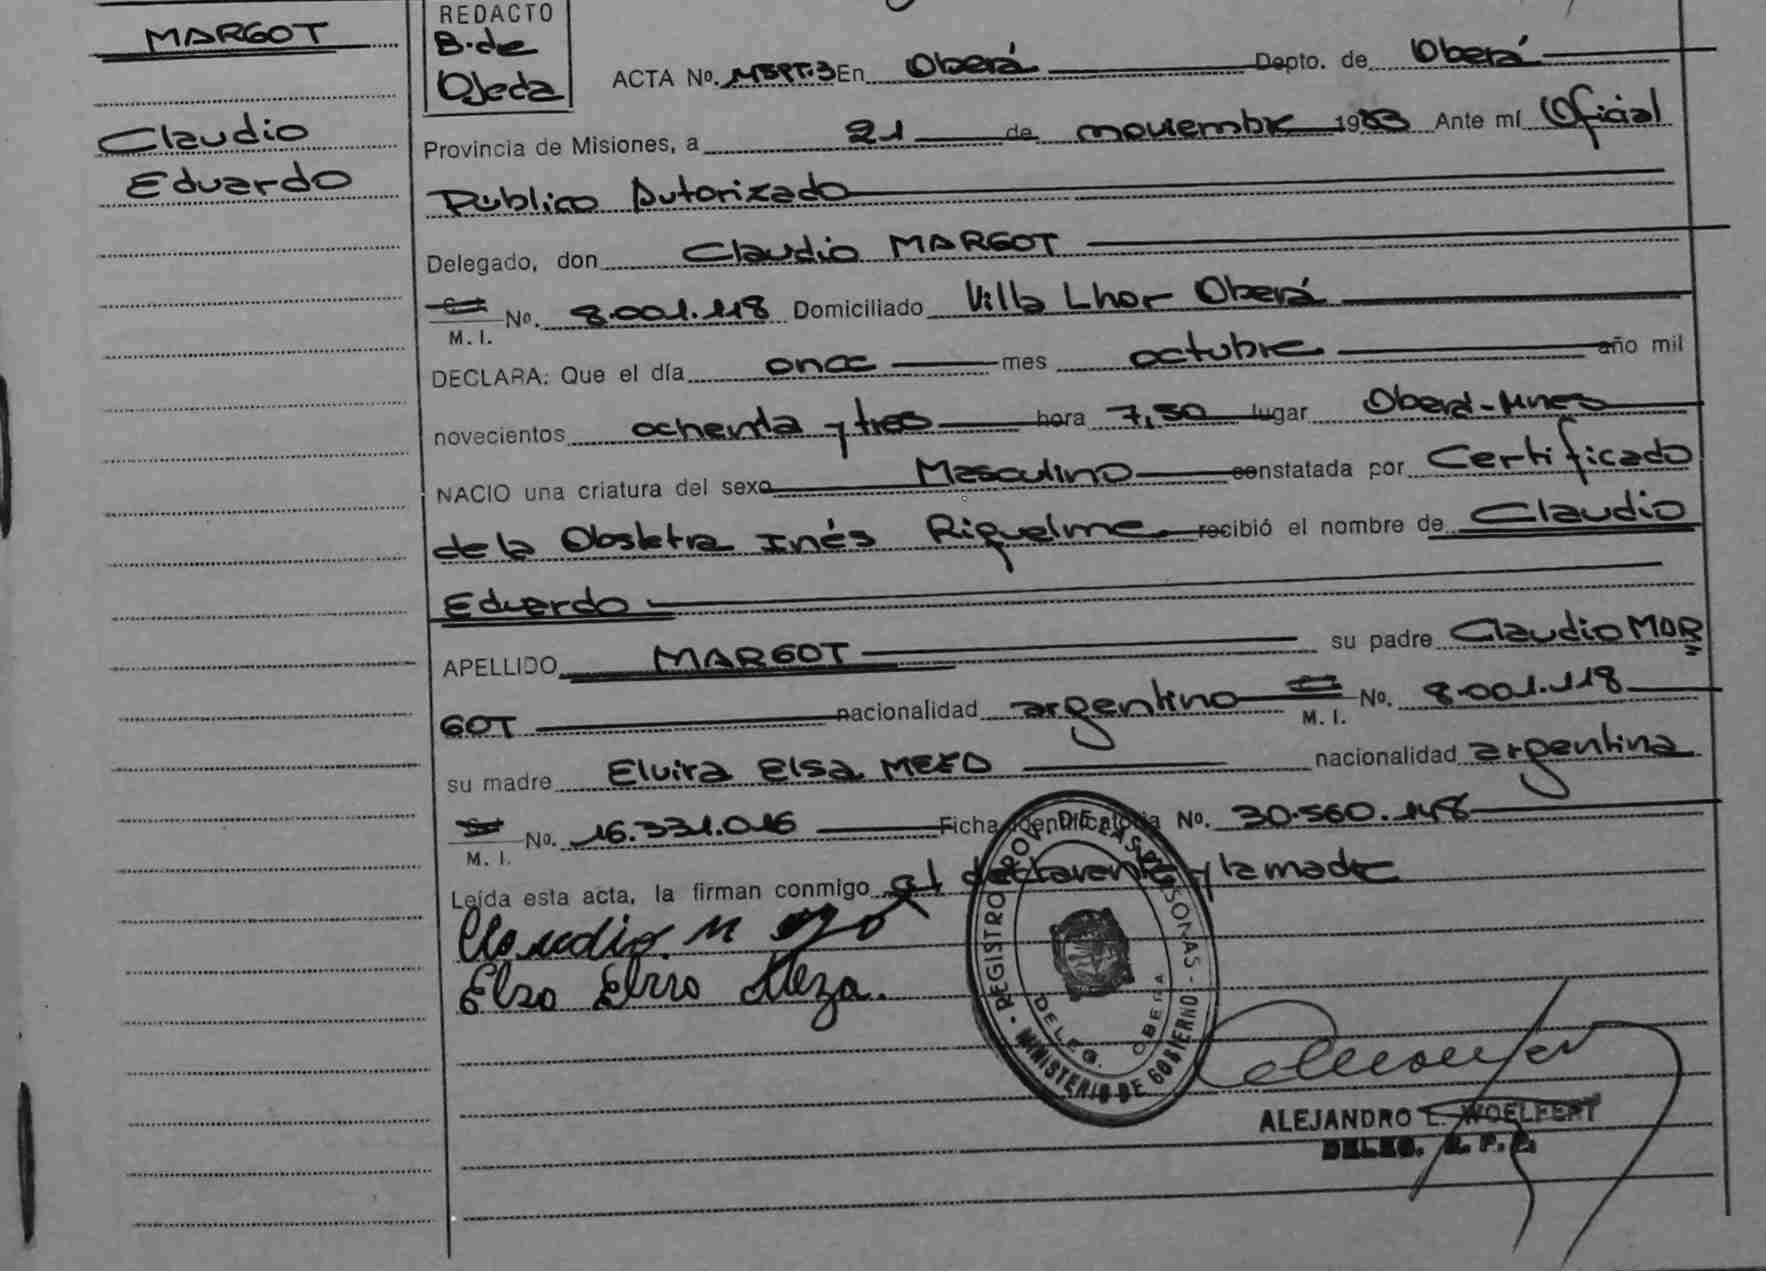 MARGOT
Claudio
Eduardo
REDACTO
B. de
Ojeda
ACTA No. En Oberá Depto. de Oberá
Provincia de Misiones, a 21 de noviembre 1983 Ante mí Oficial
Público Autorizado
Delegado, don Claudio MARGOT
M. I. No. 8.001.118 Domiciliado Villa Lhor Oberá
DECLARA: Que el día once mes octubre año mil
novecientos ochenta y tres hora 7,50 lugar Oberá-Mnes
NACIO una criatura del sexo Masculino constatada por Certificado
de la Obstetra Inés Riquelme recibió el nombre de Claudio
Eduardo
APELLIDO MARGOT su padre Claudio MAR
GOT nacionalidad argentino M. I. No. 8.001.118
su madre Elvira Elsa nacionalidad argentina
M. I. No. 16.331.016 Ficha Identificatoria No. 30.560.148
Leída esta acta, la firman conmigo el declarante y la madre
Claudio
Elsa Meza.
REGISTRO PROV. DE LAS PERSONAS - MINISTERIO DE GOBIERNO -
DELEG. OBERA
ALEJANDRO E. WOELFERT
DELEG. R. P. P.